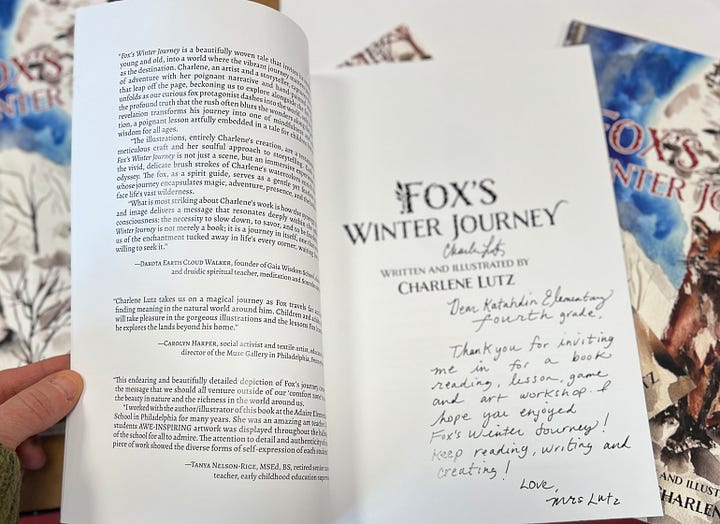 "Fox's Winter Journey is a beautifully woven tale that invites
young and old, into a world where the vibrant journey
as the destination. Charlene, an artist and a storyteller,
of adventure with her poignant narrative and hand
that leap off the page, beckoning us to explore alongside
unfolds as our curious fox protagonist dashes into the
the profound truth that the rush often blurs the wonders
revelation transforms his journey into one of
a poignant lesson artfully embedded in a tale for
wisdom for all ages.
"The illustrations, entirely Charlene's creation, are a
meticulous craft and her soulful approach to storytelling.
Fox's Winter Journey is not just a scene, but an immersive
the vivid, delicate brush strokes of Charlene's watercolors
odyssey. The fox, as a spirit guide, serves as a gentle yet
whose journey encapsulates magic, adventure, presence, and the
face life's vast wilderness.
"What is most striking about Charlene's work is how the
and image delivers a message that resonates deeply within the
consciousness: the necessity to slow down, to savor, and to
Winter Journey is not merely a book; it is a journey in itself, one
us of the enchantment tucked away in life's every corner, waiting
willing to see it."
—Dakota Earth Cloud Walker, founder of Gaia Wisdom School,
and druidic spiritual teacher, meditation and
"Charlene Lutz takes us on a magical journey as Fox travels far
finding meaning in the natural world around him. Children and
will take pleasure in the gorgeous illustrations and the lessons Fox
he explores the lands beyond his home."
—Carolyn Harper, social activist and textile artist,
director of the Muse Gallery in Philadelphia,
"This endearing and beautifully detailed depiction of Fox's journey
the message that we should all venture outside of our 'comfort
the beauty in nature and the richness in the world around us.
"I worked with the author/illustrator of this book at the Adaire
School in Philadelphia for many years. She was an amazing art
students AWE-INSPIRING artwork was displayed throughout the
of the school for all to admire. The attention to detail and authenticity
piece of work showed the diverse forms of self-expression of each
—Tanya Nelson-Rice, MSEd, BS, retired senior
teacher, early childhood education
Fox's
Winter Journey
Charlene Lutz
Written and Illustrated by
Charlene Lutz
Dear Katahdin Elementary
fourth grade,
Thank you for inviting
me in for a book
reading, lesson, game
and art workshop. I
hope you enjoyed
Fox's Winter Journey!
Keep reading, writing and
creating!
Love,
Mrs Lutz
Fox's
Winter
Fox's
Winter
Lutz
Charlene